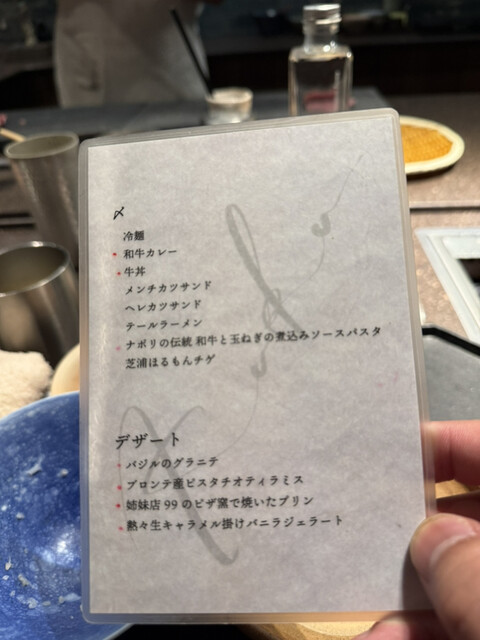 〆
冷麺
・和牛カレー
・牛丼
メンチカツサンド
ヘレカツサンド
テールラーメン
・ナポリの伝統 和牛と玉ねぎの煮込みソースパスタ
芝浦ほるもんチゲ
デザート
・バジルのグラニテ
・ブロンテ産ピスタチオティラミス
・姉妹店 99 のピザ窯で焼いたプリン
・熱々生キャラメル掛けバニラジェラート